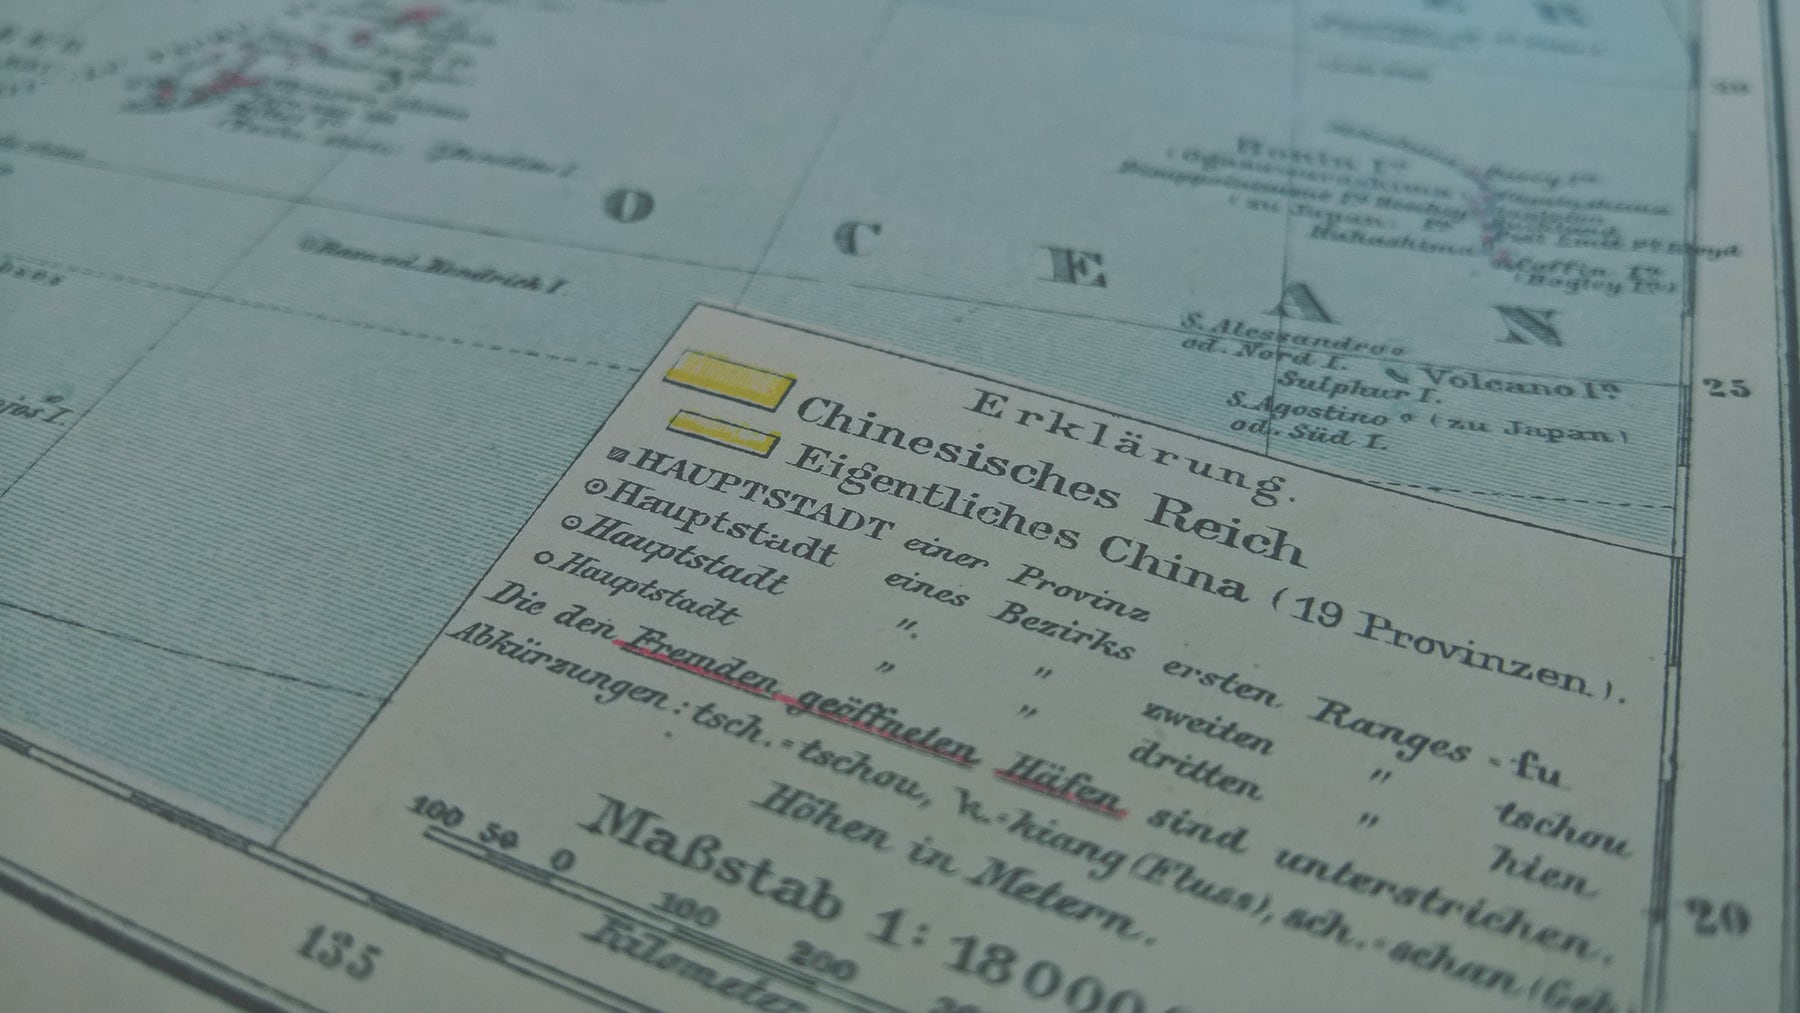 O C E A N
Bonin Iⁿ
(zu Japan)
Hahashima
Coffin Iⁿ
25
S. Alessandro
od. Nord I.
Volcano Iⁿ
Sulphur I.
S. Agostino (zu Japan)
od. Süd I.
Erklärung.
Chinesisches Reich
Eigentliches China (19 Provinzen).
HAUPTSTADT einer Provinz
Hauptstadt eines Bezirks ersten Ranges - fu
Hauptstadt " " zweiten " tschou
Hauptstadt " " dritten " hien
Die den Fremden geöffneten Häfen sind unterstrichen.
Abkürzungen: tsch.=tschou, k.=kiang (Fluss), sch.=schan (Geb
Höhen in Metern.
Maßstab 1:18000
100 50 0 100 200
Kilometer
20
135